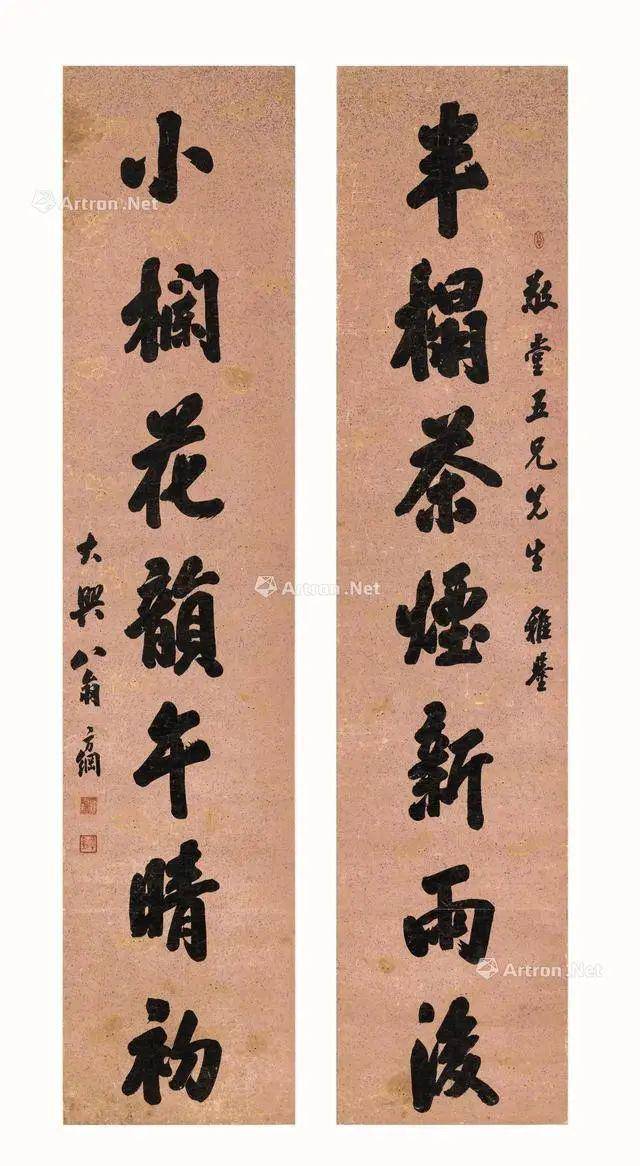 敬堂五兄先生 雅鑒
半榻茶煙新雨後
小欄花韻午晴初
大興翁方綱
Artron.Net
Artron.Net
Artron.Net
Artron.Net